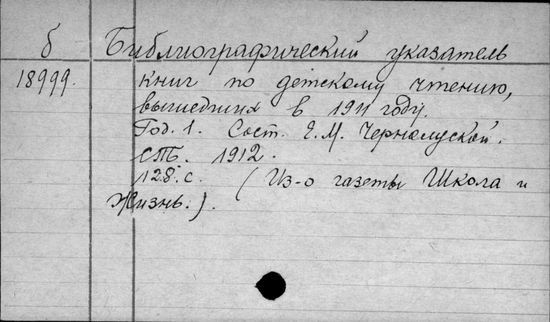 б Библиографический указатель
18999. книг по детскому чтению,
вышедших в 1911 году.
Год. 1. Сост. Е. М. Чернолуской.
СПб. 1912.
128. с. (Из-о газеты Школа и
Жизнь.).